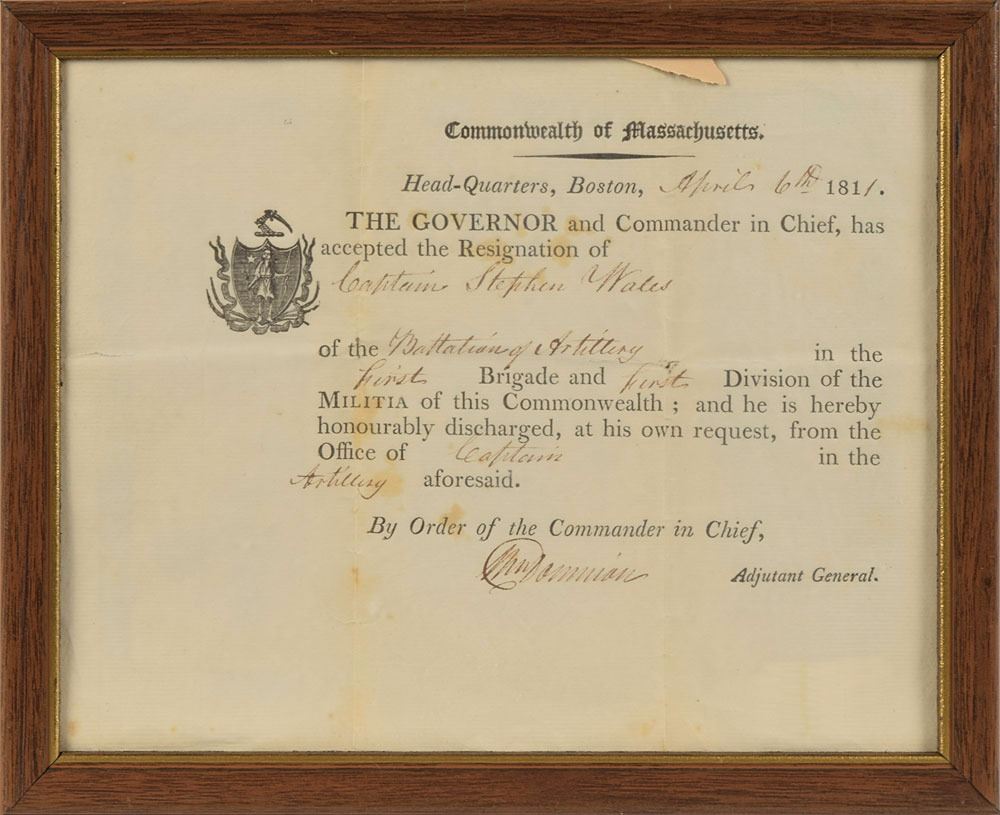 Commonwealth of Massachusetts.
Head-Quarters, Boston, April 6th 1811.
THE GOVERNOR and Commander in Chief, has
accepted the Resignation of
Captain Stephen Wales
of the Battalion of Artillery in the
First Brigade and First Division of the
MILITIA of this Commonwealth ; and he is hereby
honourably discharged, at his own request, from the
Office of Captain in the
Artillery aforesaid.
By Order of the Commander in Chief,
Adjutant General.